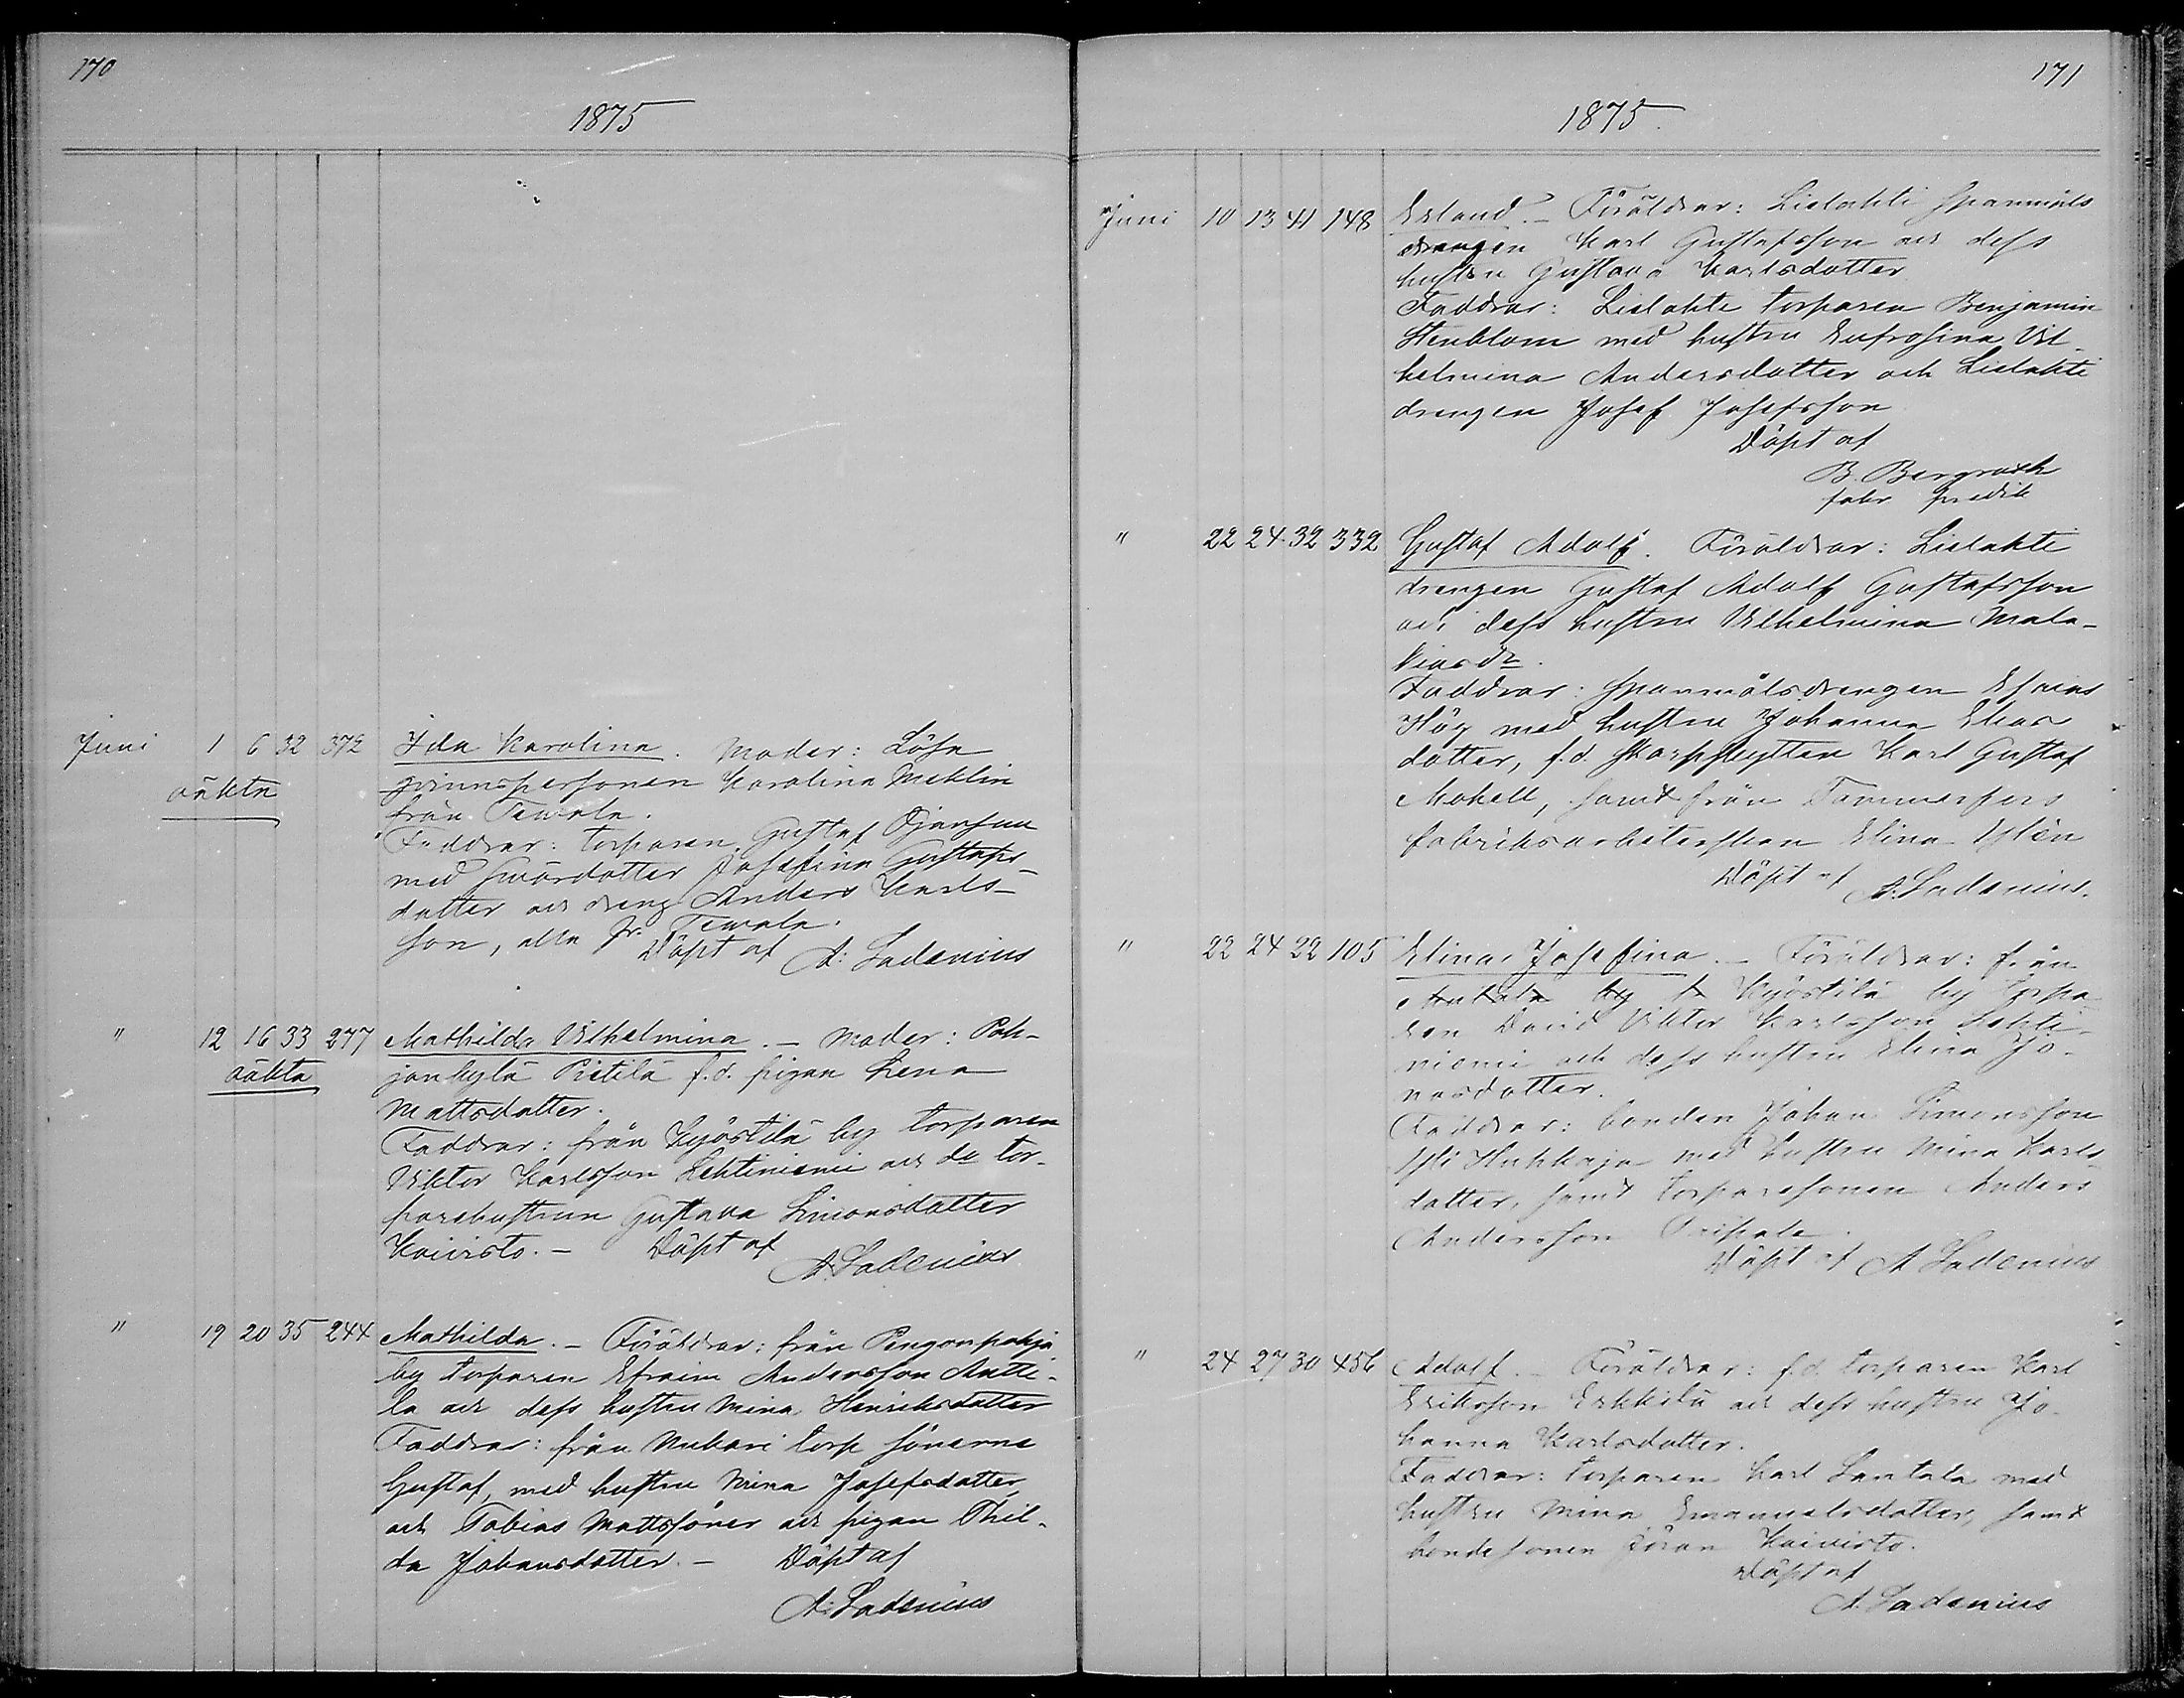 170
1875
Juni 1 6 32 372 Ida Karolina. Moder: Lösa
oäkta
qvinnspersonen Karolina Meklin
från Tewala.
Faddrar: torparen Gustaf Ojansuu
med swärdotter Josefina Gustafs-
dotter och dreng Anders Karls-
son, alla fr. Tewala.
Döpt af A. Ladenius
" 12 16 33 277 Mathilda Vilhelmina. - Moder: Poh-
oäkta
jankylä Pietilä f.d. pigan Lena
Mattsdotter.
Faddrar: från Kyöstilä by torparen
Viktor Karlsson Lehtiniemi och do tor-
parehustrun Gustava Simonsdotter
Koivisto. - Döpt af
A. Ladenius
" 19 20 35 244 Mathilda. - Föräldrar: från Pengonpohja
by torparen Efraim Andersson Antti-
la och dess hustru Mina Henriksdotter
Faddrar: från Mukari torp sönerna
Gustaf, med hustru Mina Josefsdotter,
och Tobias Mattssöner och pigan Thil-
da Johansdotter. - Döpt af
A. Ladenius
171
1875.
Juni 10 13 41 148 Erland. - Föräldrar: Lielahti spanmåls
drengen Karl Gustafsson och dess
hustru Gustava Karlsdotter
Faddrar: Lielahti torparen Benjamin
Stenblom med hustru Eufrosina Vil-
helmina Andersdotter och Lielahti
drengen Josef Josefsson
Döpt af
B. Bergroth
kpredik
" 22 24 32 332 Gustaf Adolf. Föräldrar: Lielahti
drengen Gustaf Adolf Gustafsson
och dess hustru Vilhelmina Mala-
kiasdr.
Faddrar: spanmålsdrengen Esaias
Hög med hustru Johanna Elias
dotter, f.d. skarpskytten Karl Gustaf
Mokell, samt från Tammerfors
fabriksarbeterskan Elina Ylén
Döpt af A. Ladenius.
" 22 24 22 105 Elina Josefina. - Föräldrar: från
by Kyöstilä by torpa
ren David Viktor Karlsson Lehti-
niemi och dess hustru Elina Jo-
nasdotter.
Faddrar: bonden Johan Simonsson
Yli Huhkaja med hustru Mina Karls-
dotter, samt torparesonen Anders
Andersson
Döpt af A Ladenius
" 24 27 30 456 Adolf. - Föräldrar: f.d. torparen Karl
Eriksson Erkkilä och dess hustru Jo-
hanna Karlsdotter.
Faddrar: torparen Karl Santala med
hustru Mina Emanuelsdotter, samt
bondesonen Göran Koivisto.
Döpt af
A. Ladenius